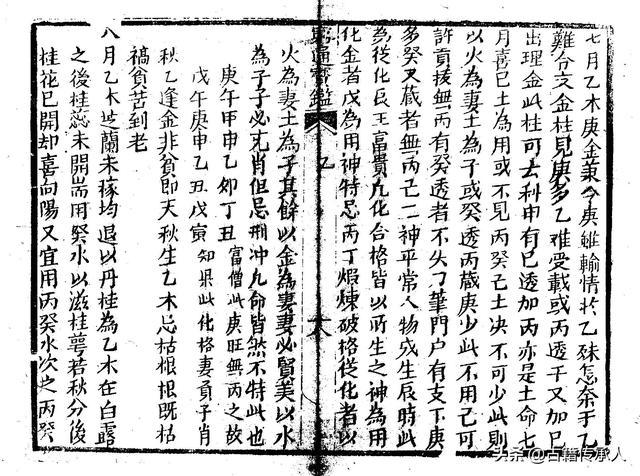 七月乙木庚金秉令庚雖輸情於乙殊怎奈于乙
難合支金柱見庚多乙难受載或丙透干又加巳
出理金此柱可去科甲有巳透加丙亦是土命七
月喜巳土為用或不見丙癸己土决不可少此則
以火為妻土為子或癸透丙藏庚少此不用己可
許貢援無丙有癸透者不失刀筆門户有支下庚
多癸又藏者無丙己二神平常人物或生辰時此
為從化長王富貴凡化合格皆以所生之神為用
化金者戊為用神特忌丙丁煅煉破格從化者以
通寳鑑
火為妻土為子其餘以金為妻妻必賢美以水
為子子必克肖但忌刑冲凡命皆然不特此也
庚午甲申乙卯丁丑 富僧此庚旺無丙之故
戊午庚申乙丑戊寅 知県此化格妻負子肖
秋乙逢金非貧即夭秋生乙木忌枯根根既枯
禍貧苦到老
八月乙木芝蘭禾稼均退以丹桂為乙木在白露
之後桂蕊未開耑用癸水以滋桂萼若秋分後
桂花已開却喜向陽又宜用丙癸水次之丙癸
头条@古籍传承人